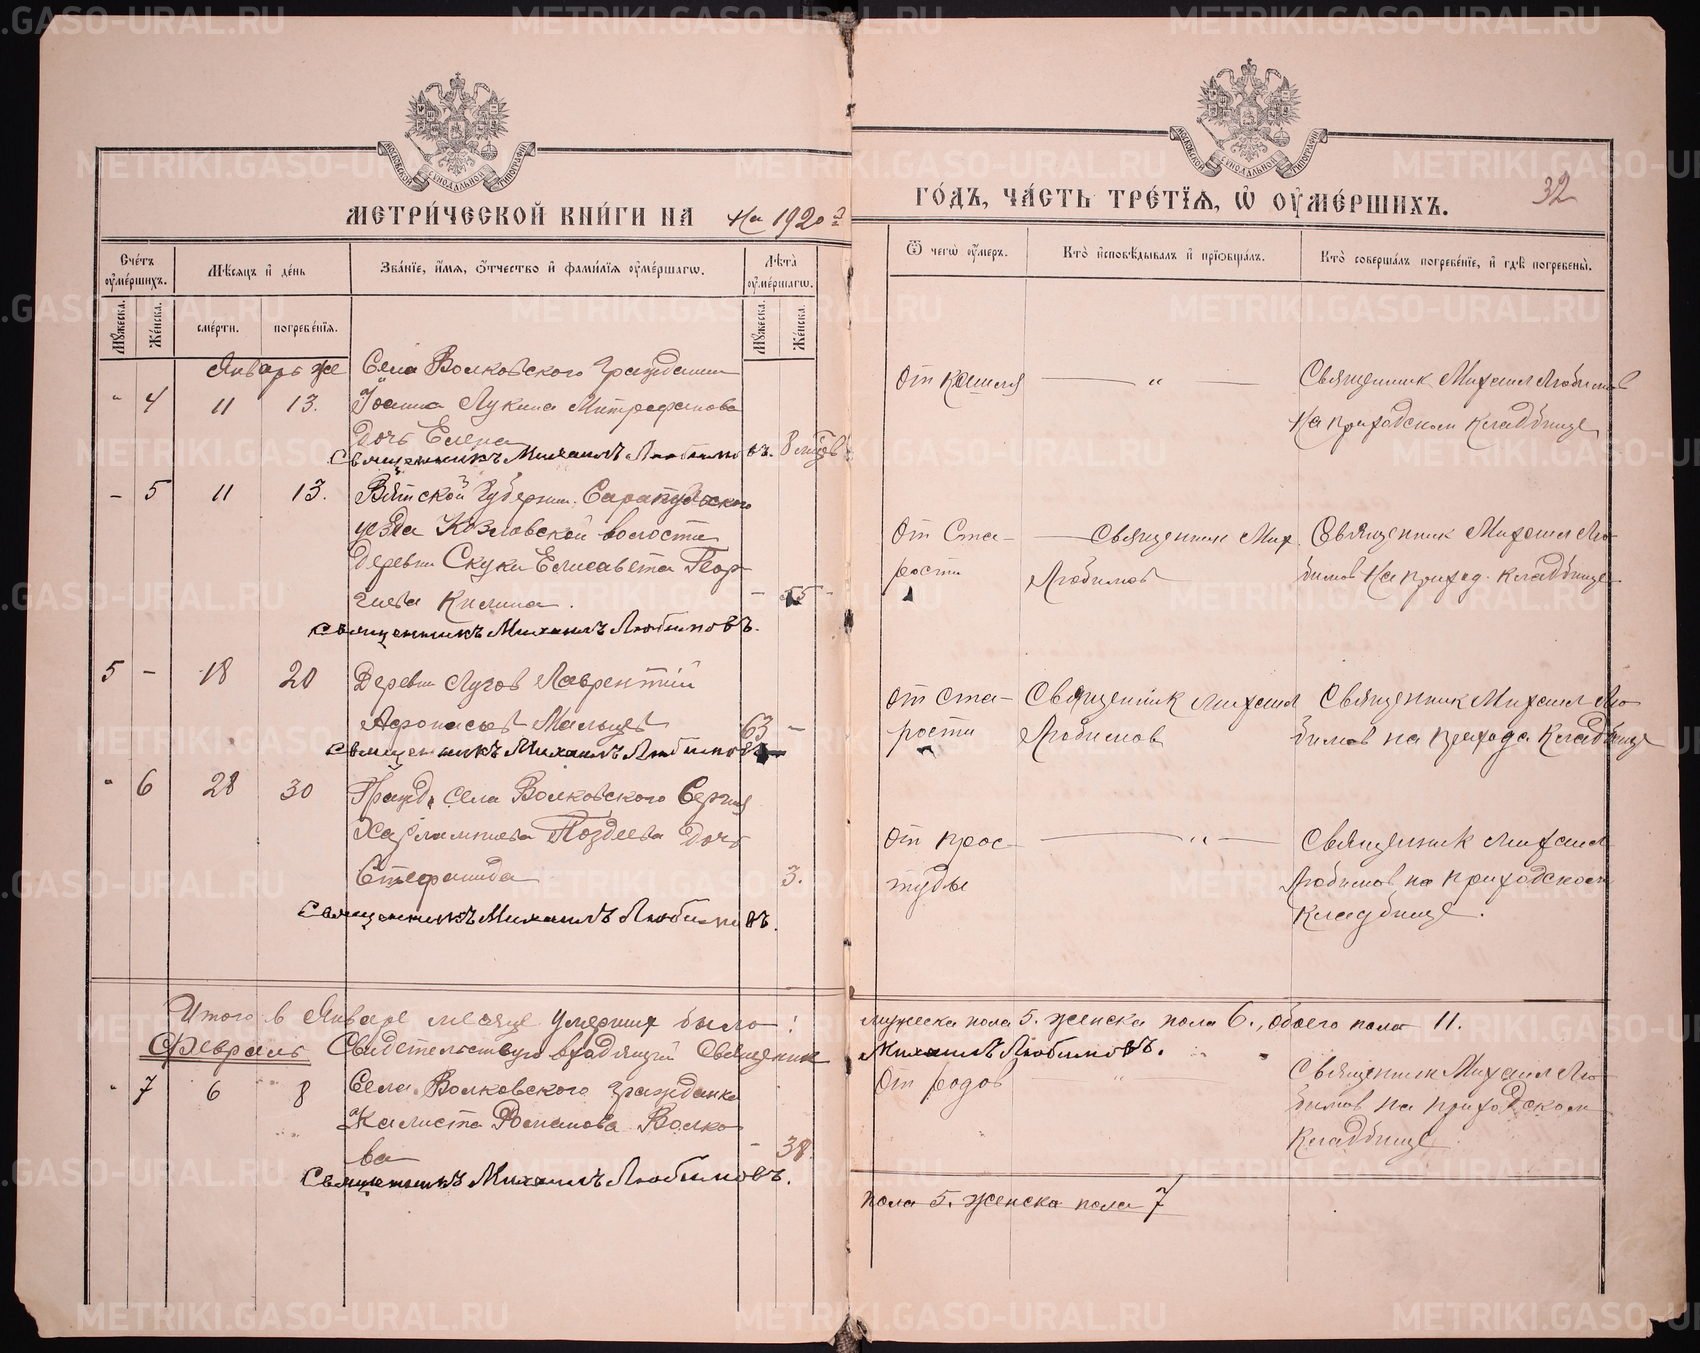 МЕТРИ́ЧЕСКОЙ КНИ́ГИ НА на 1920 й
ГО́ДЪ, ЧА́СТЬ ТРЕ́ТЇѦ, Ѡ҆ ОУ҆МЕ́РШИХЪ.
32
Сче́тъ оу҆ме́ршихъ.
Мѣ́сѧцъ и҆ де́нь
Зва́нїе, и҆́мѧ, ѻ҆́тчество и҆ фами́лїѧ оу҆ме́ршагѡ.
Лѣта̀ оу҆ме́ршагѡ.
Ѿ чегѡ̀ оу҆́меръ.
Кто̀ и҆сповѣ́дывалъ и҆ прїѡбща́лъ.
Кто̀ соверша́лъ погребе́нїе, и҆ гдѣ̀ погребены̀.
Мꙋ́жеска.
Же́нска.
сме́рти.
погребе́нїѧ.
Мꙋ́жеска.
Же́нска.
Январь же
Села Волковского гражданин
" 4 11 13. Іоанна Лукина Митрофанова
дочь Елена
8
Священникъ Михаилъ Любимовъ.
От кашля
"
Священник Михаил Любимов
На приходском кладбище
– 5 11 13. Вятской Губернии Сарапульского
уезда Козловской волости
деревни Скуки Елисавета Геор
гиева Килина.
– 55
Священникъ Михаилъ Любимовъ.
От Ста-
рости
Священник Мих.
Любимов
Священник Михаил Лю-
бимов На приход. кладбище
5 – 18 20 Деревни Лугов Лаврентий
Афонасьев Мальцев
63 –
Священникъ Михаилъ Любимовъ
От ста-
рости
Священник Михаил
Любимов
Священник Михаил Лю-
бимов на прихода кладбище
" 6 28 30 Гражд. села Волковского Сергия
Харлампиева Поздеева дочь
Стефанида
3.
Священникъ Михаилъ Любимовъ.
От прос-
туды
"
Священник Михаил
Любимов, на приходском
кладбище.
Итого в Январе месяце умерших было:
мужеска пола 5. женска пола 6., обоего пола 11.
Февраль Свидетельствую Священник
Михаилъ Любимовъ.
" 7 6 8 Села Волковского гражданка
Калиста Романова Волко
ва
– 38.
Священникъ Михаилъ Любимовъ.
От родов
"
Священник Михаил Лю-
бимов на приходском
Кладбище.
пола 5. женска пола 7